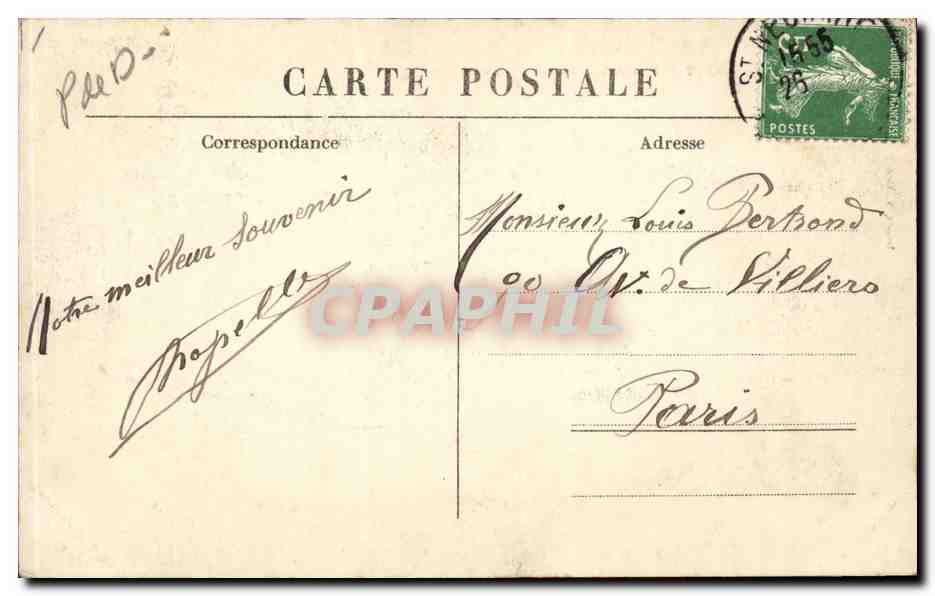 P de D
CARTE POSTALE
15-55
26
5
FRANÇAISE
POSTES
Correspondance
Adresse
Notre meilleur souvenir
Chapelle
Monsieur Louis Bertrand
90 Av. de Villiers
Paris
CPAPHIL